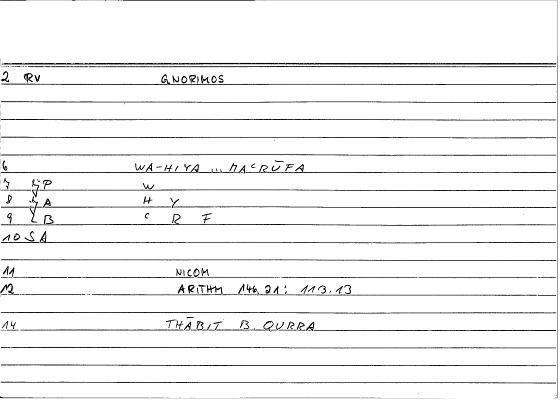 2 RV GNORIMOS
6 WA-HIYA ... MAᶜRŪFA
7 P W
8 A H Y
9 B ᶜ R F
10 SA
11 NICOM
12 ARITHM 146,21: 113,13
14 THĀBIT B. QURRA